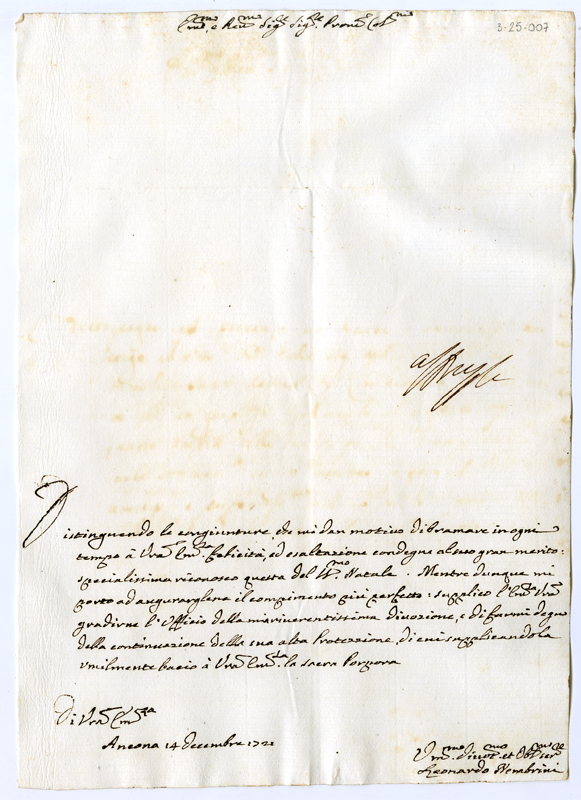 Em̃o, e Reũ Sig.r Sig.r Prõne Col.mo
3-25-007
Distinguendo le congiunture, che mi dan motivo di bramare in ogni
tempo à Vrã Em̃za felicità, ed esaltazione condegne al suo gran merito:
specialissima riconosco questa del S.mo Natale. Mentre dunque mi
porto ad augurarglene il compimento più perfetto: supplico l'Em̃za Vrã
gradirne l'Officio della mia riverentissima divozione, e di farmi degno
della continuazione della sua alta Protezzione, di cui supplicandola
umilmente bacio à Vrã Em̃za la sacra Porpora
Di Vrã Em̃za
Ancona 14 Decembre 1721
Um.mo Divot.mo et Obl.mo ser.re
Leonardo Nembrini